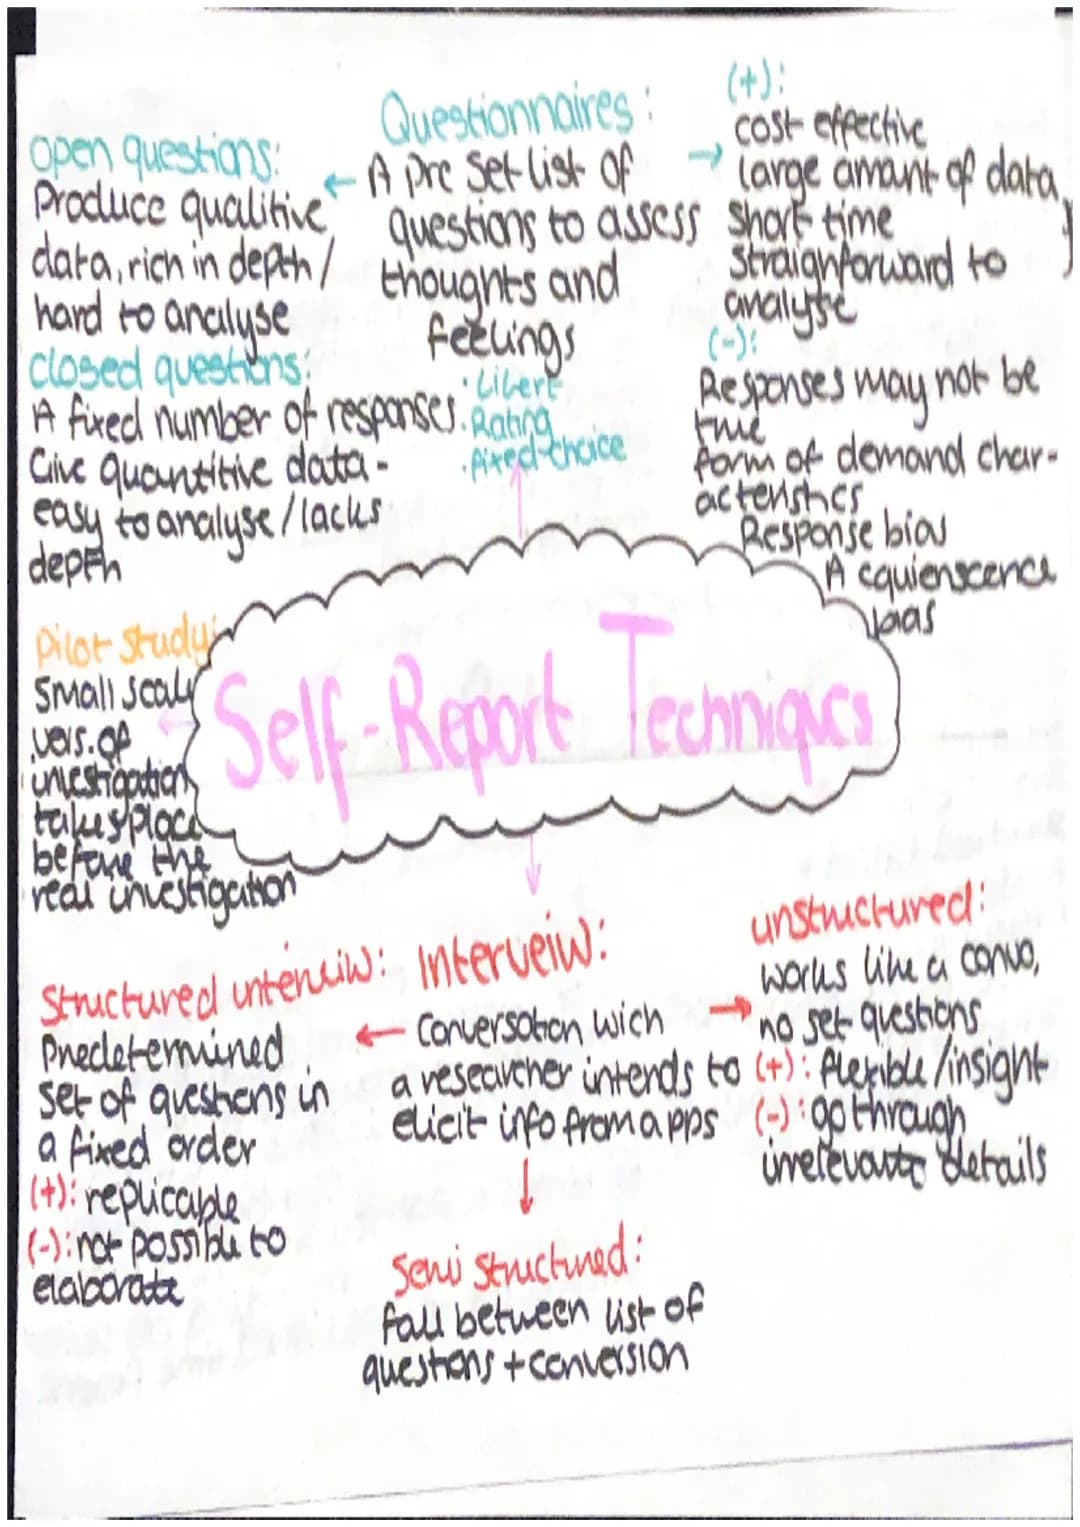 Questionnaires:
A pre set list of
questions to assess
thoughts and
feelings
· Likert
· Rating
· fixed-choice
open questions:
Produce qualitive
data, rich in depth/
hard to analyse
closed questions:
A fixed number of responses.
Give quantitive data -
easy to analyse/lacks
depth
(+):
cost effective
large amant of data,
short time
straighforward to
analyse
(-):
Responses may not be
true
form of demand char-
acteristics
Response bias
Acquienscence
bias
Pilot study:
Small scale
vers. of
investigation
takes place
before the
real investigation
Self-Report Techniques
Interveiw:
Conversation wich
a researcher intends to
elicit info from a pps
Structured interveiw:
Predetermined
set of questions in
a fixed order
(+): replicable
(-): not possible to
elaborate
unstructured:
works like a convo,
no set questions
(+): flexible/insight
(-): go through
irrelevante details
Semi structured:
fall between list of
questions + conversion